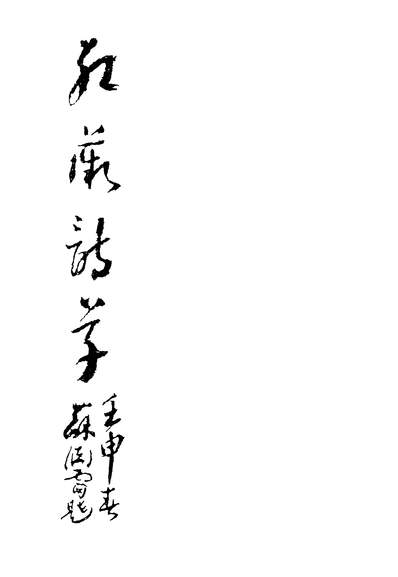 紅薇詩草
壬申春
蘇淵雷題